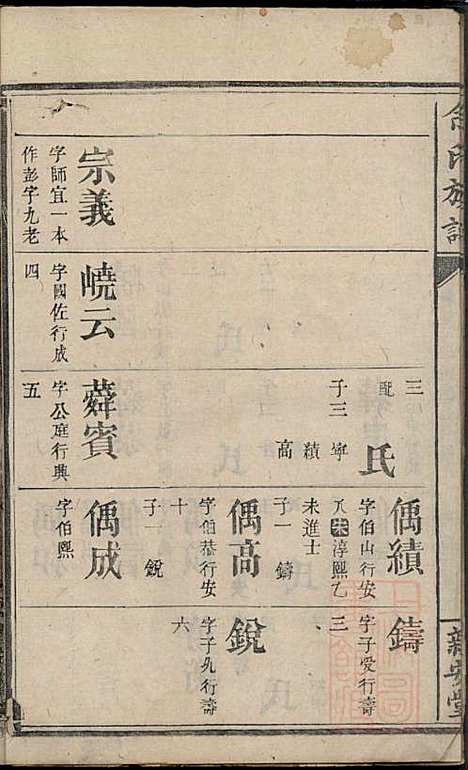 氏族譜
宗義
字師宜一本
作彭字九老
嶢云
字國佐行成
四
三
配
氏
子三
寧
績
高
蕣賓
字公庭行興
五
偊績
字伯山行安
八朱淳熙乙
未進士
子一
鑄
偊高
字伯恭行安
十
子一
銳
偊成
字伯熙
鑄
字子爱行壽
三
銳
字子允行壽
六
新安堂